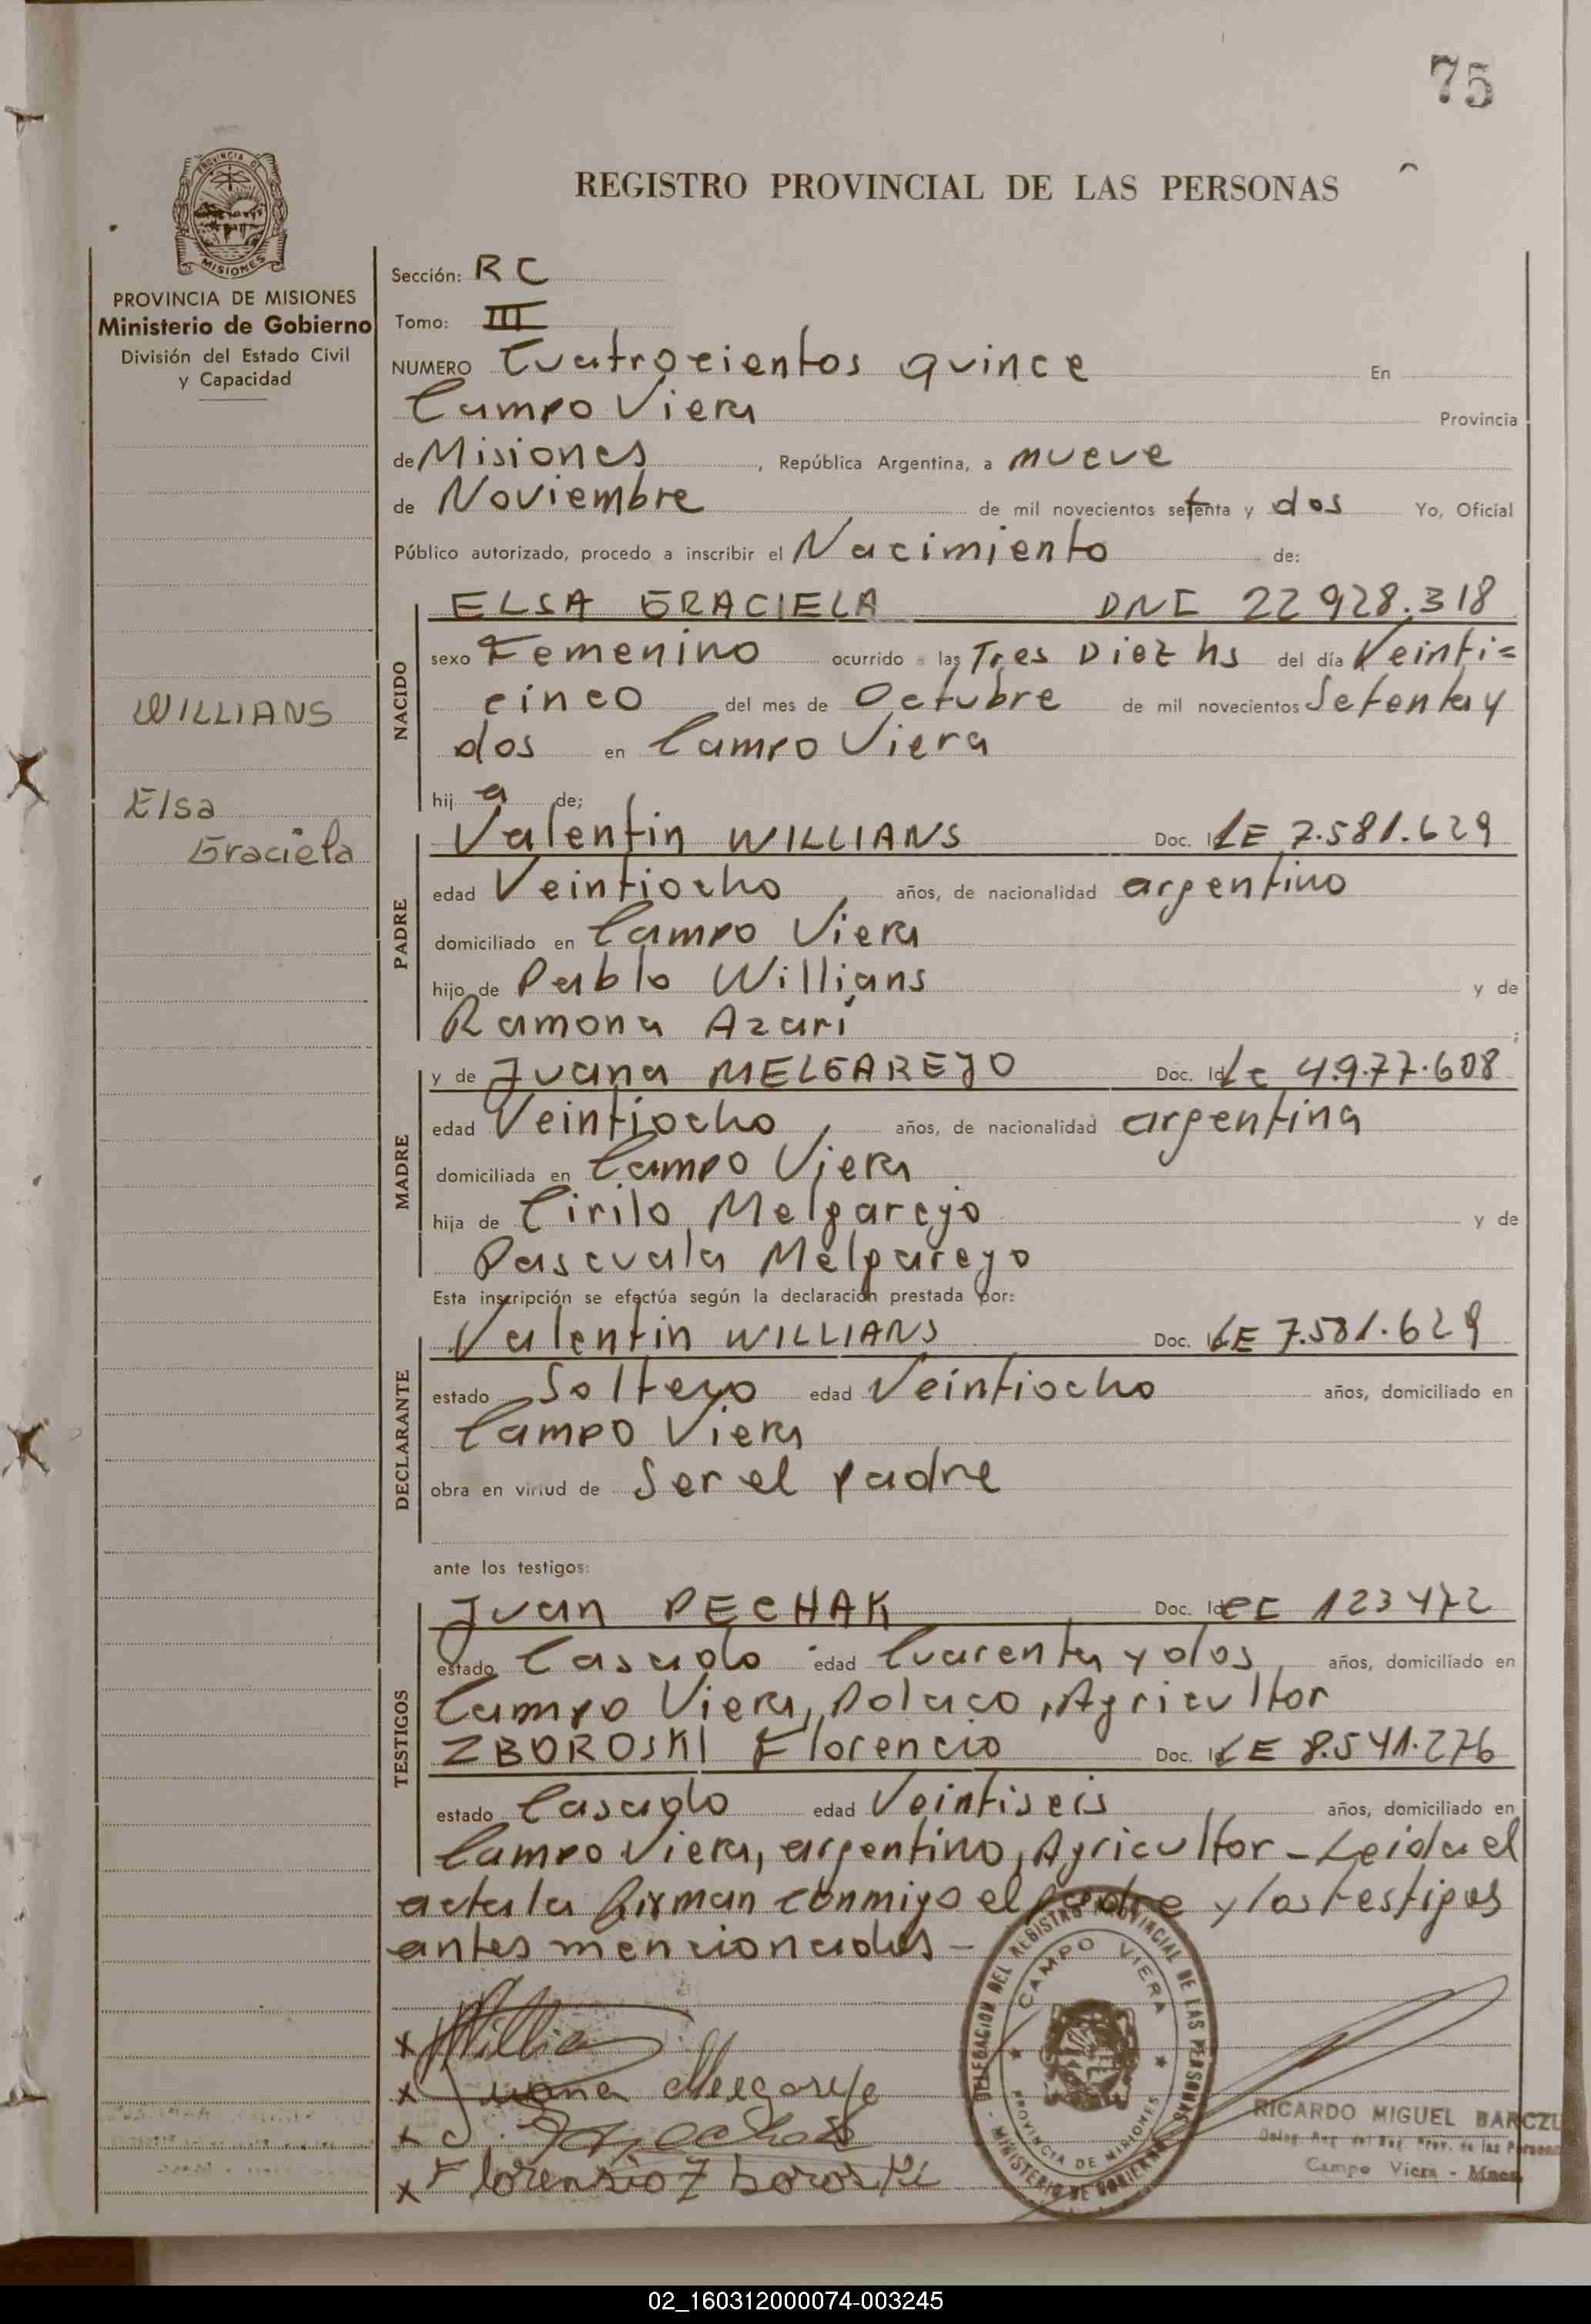 75
REGISTRO PROVINCIAL DE LAS PERSONAS
PROVINCIA DE MISIONES
PROVINCIA DE MISIONES
Ministerio de Gobierno
División del Estado Civil
y Capacidad
WILLIANS
Elsa
Graciela
Sección: R C
Tomo: III
NUMERO Cuatrocientos quince En
Campo Viera Provincia
de Misiones, República Argentina, a nueve
de Noviembre de mil novecientos setenta y dos Yo, Oficial
Público autorizado, procedo a inscribir el Nacimiento de:
NACIDO
ELSA GRACIELA DNI 22 928.318
sexo Femenino ocurrido a las Tres Diez hs del día Veinti=
cinco del mes de Octubre de mil novecientos Setenta y
dos en Campo Viera
hij a de;
PADRE
Valentin WILLIANS Doc. Id LE 7.581.629
edad Veintiocho años, de nacionalidad argentino
domiciliado en Campo Viera
hijo de Pablo Willians y de
Ramona Azarí ;
MADRE
y de Juana MELGAREJO Doc. Id Lc 4.977.608
edad Veintiocho años, de nacionalidad argentina
domiciliada en Campo Viera
hija de Cirilo Melgarejo y de
Pascuala Melgarejo
Esta inscripción se efectúa según la declaración prestada por:
DECLARANTE
Valentin WILLIANS Doc. Id LE 7.581.629
estado Soltero edad Veintiocho años, domiciliado en
Campo Viera
obra en virtud de Ser el padre
ante los testigos:
TESTIGOS
Juan PECHAK Doc. Id CI 123472
estado Casado edad Cuarenta y dos años, domiciliado en
Campo Viera, Polaco, Agricultor
ZBOROSKI Florencio Doc. Id LE 8.541.276
estado Casado edad Veintiseis años, domiciliado en
Campo Viera, argentino, Agricultor - Leida el
acta la firman conmigo el padre y los testigos
antes mencionados -
x Willia
x Juana Melgarejo
x
x Florensio Zboroski
DELEGACION DEL REGISTRO PROVINCIAL DE LAS PERSONAS
CAMPO VIERA
PROVINCIA DE MISIONES
MINISTERIO DE GOBIERNO
RICARDO MIGUEL BARCZU
Deleg. Reg. del Reg. Prov. de las Personas
Campo Viera - Mnes
02_160312000074-003245